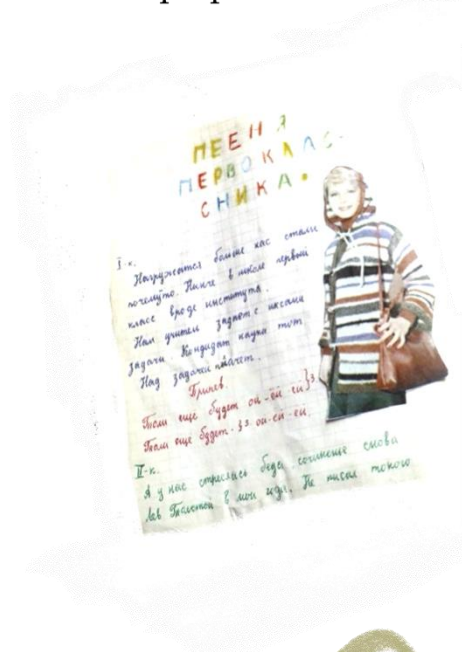 ПЕЕНЯ
ПЕРВОКЛАС-
СНИКА.
I-к.
Нагружатся больше нас стали
почемуто. Нынче в школе первый
класс вроде института.
Нам учитель задает с иксами
задачи. Кондидат науки тот
Над задачей плачет.
Припев.
То ли еще будет ой-ёй-ёй}3
То ли еще будет-}3. ой-ёй-ёй.
II-к.
А у нас стряслась беда сочинение снова
Лев Толстой в мои года. Не писал такого